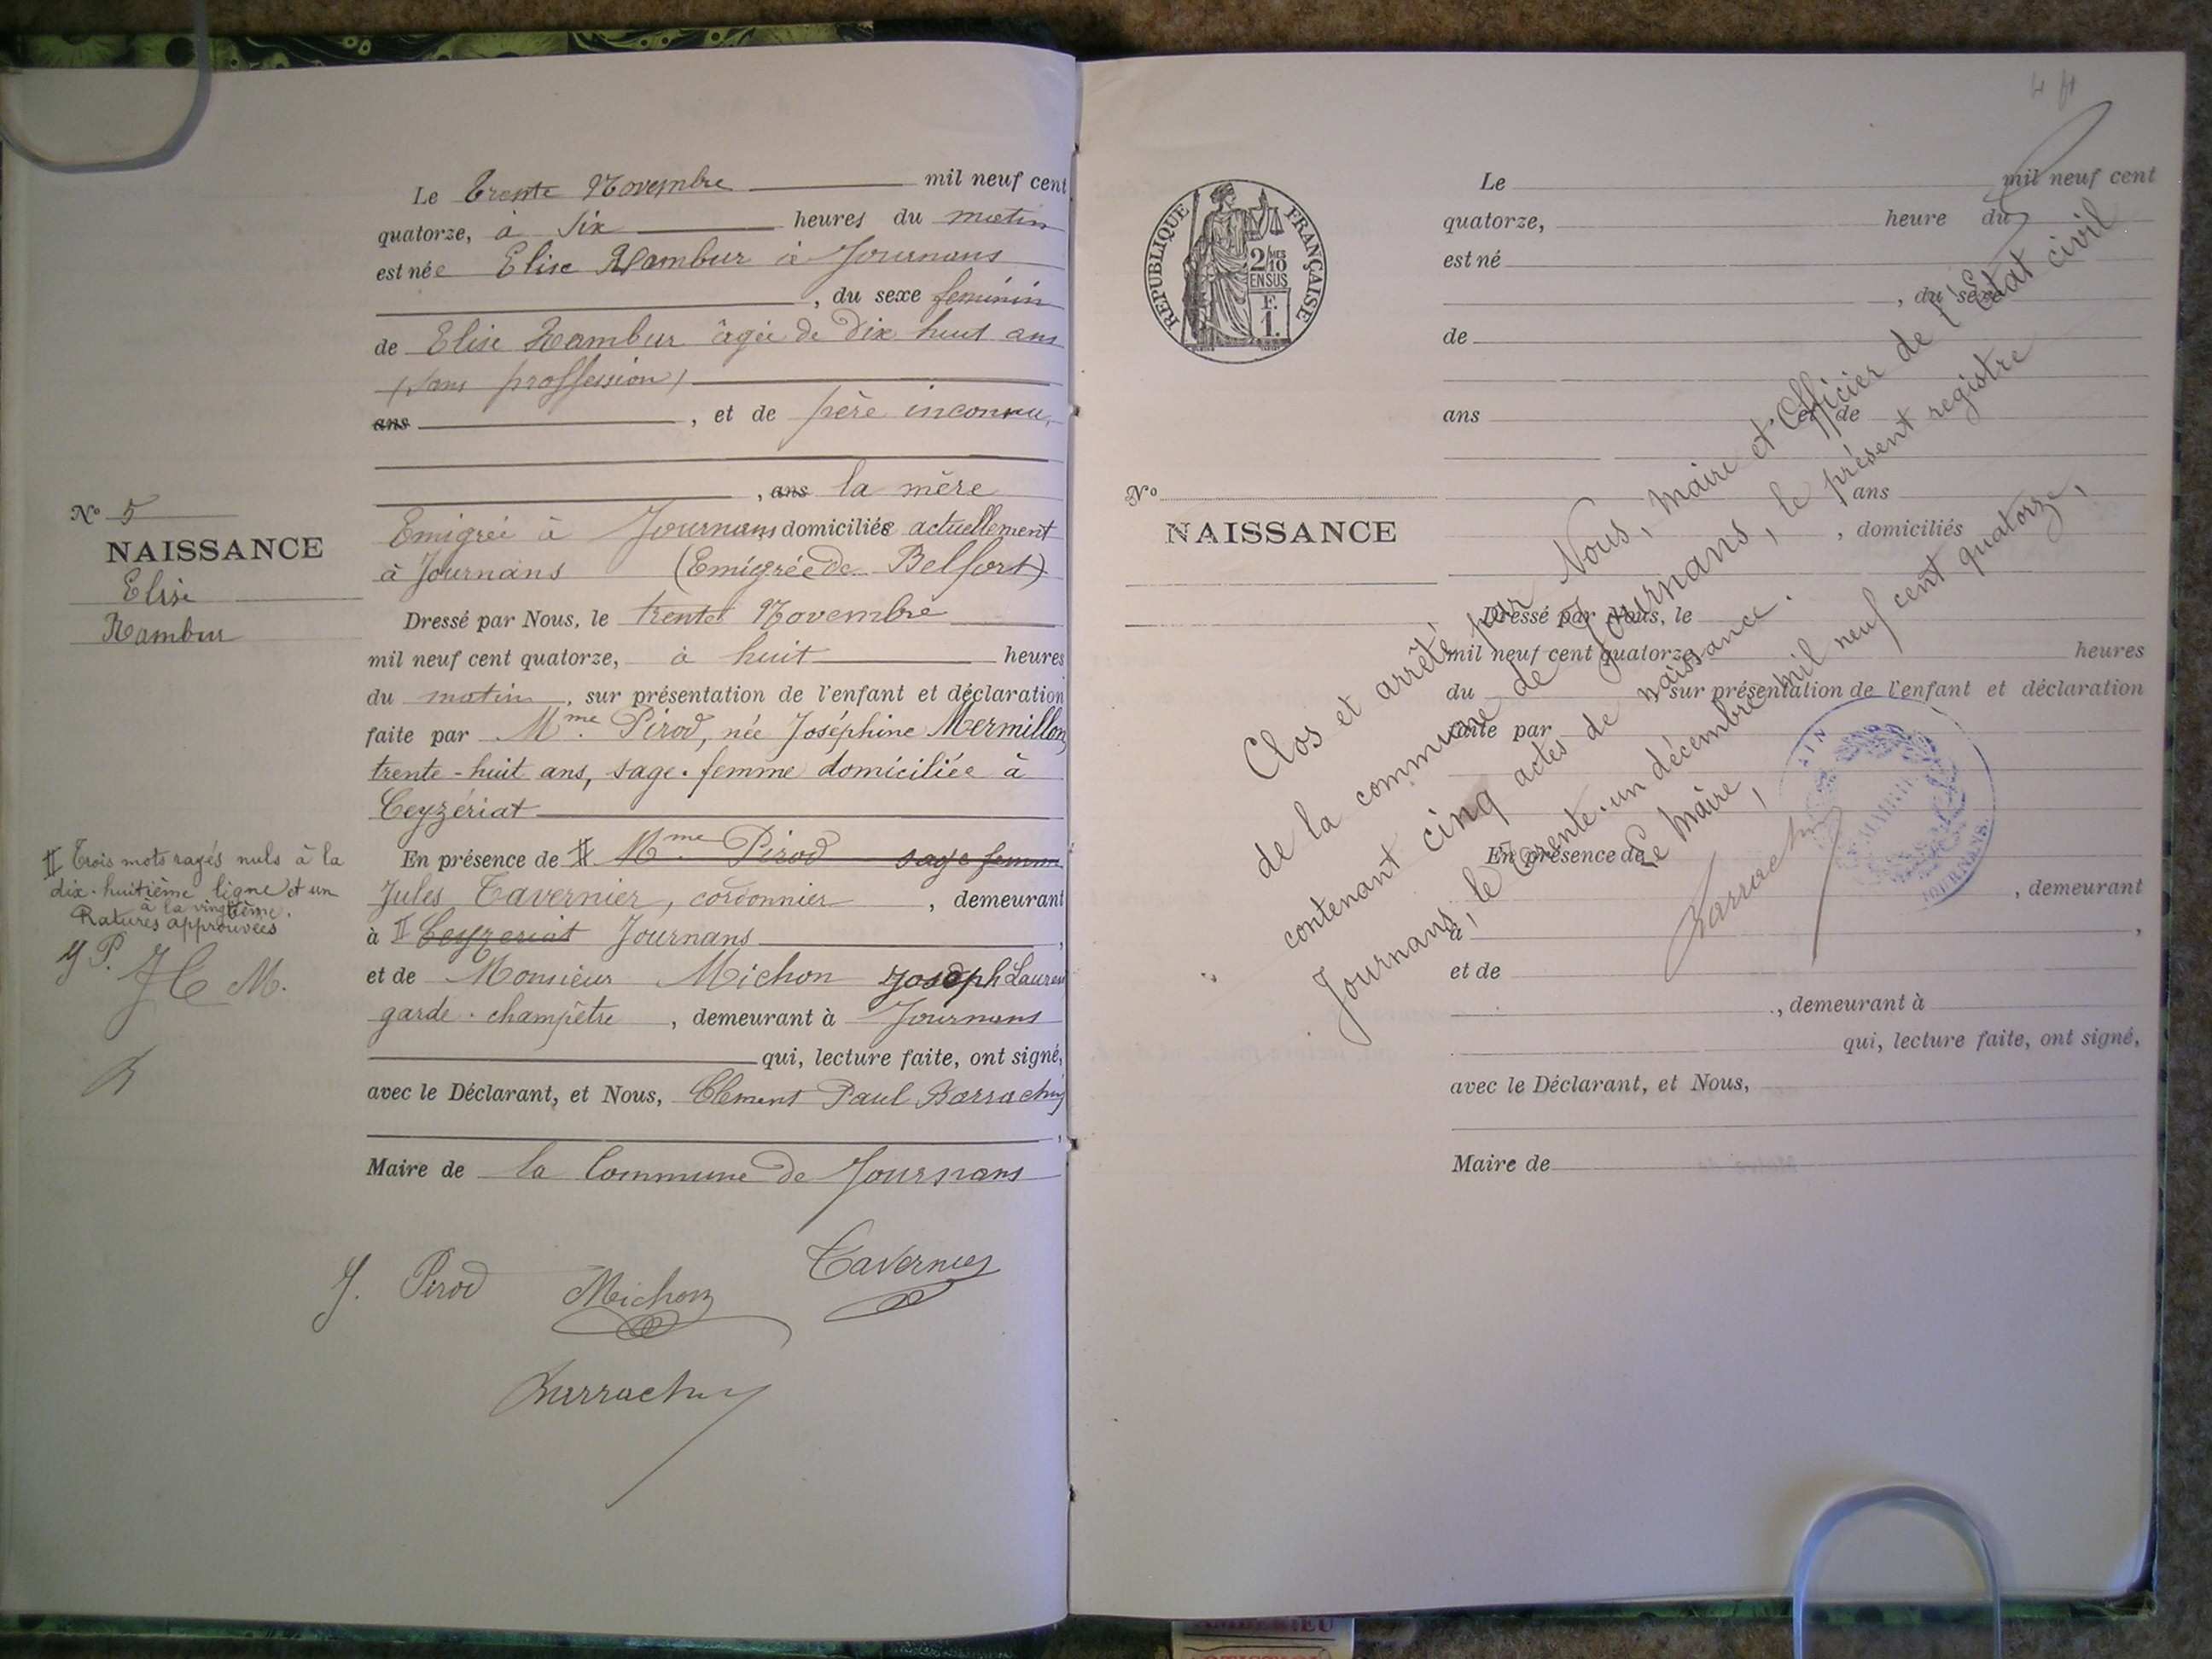 Le Trente Novembre mil neuf cent
quatorze, à six heures du matin
est née Elise Rambur à Journans
, du sexe feminin
de Elise Rambur âgée de dix huit ans
(sans proffession)
ans , et de père inconnu,
, ans la mère
Emigrée à Journans domiciliée actuellement
à Journans (Emigrée de Belfort)
Dressé par Nous, le trente Novembre
mil neuf cent quatorze, à huit heures
du matin, sur présentation de l'enfant et déclaration
faite par Mme Pirod, née Joséphine Mermillon,
trente-huit ans, sage-femme domiciliée à
Ceyzériat
En présence de Mme Pirod sage femme
Jules Tavernier, cordonnier , demeurant
à Ceyzeriat Journans ,
et de Monsieur Michon Joseph Laurent
garde-champêtre , demeurant à Journans
qui, lecture faite, ont signé,
avec le Déclarant, et Nous, Clément Paul Barrachin
,
Maire de la Commune de Journans
J. Pirod Michon Tavernier
Barrachin
No 5
NAISSANCE
Elise
Rambur
Trois mots rayés nuls à la
dix-huitième ligne et un
à la vingtième.
Ratures approuvées
J P.
M.
REPUBLIQUE FRANÇAISE
2 MES
10
EN SUS
F.
1.
No
NAISSANCE
Le mil neuf cent
quatorze, heure du
est né
, du sexe
de
ans et de
ans
, domiciliés
Dressé par Nous, le
mil neuf cent quatorze, heures
du sur présentation de l'enfant et déclaration
faite par
En présence de
, demeurant
à ,
et de
, demeurant à
qui, lecture faite, ont signé,
avec le Déclarant, et Nous,
Maire de
Clos et arrêté par Nous, Maire et Officier de l'Etat civil
de la commune de Journans, le présent registre
contenant cinq actes de naissance.
Journans, le trente-un décembre mil neuf cent quatorze,
Le Maire,
Barrachin
MAIRIE
AIN
JOURNANS
AMBERIEU